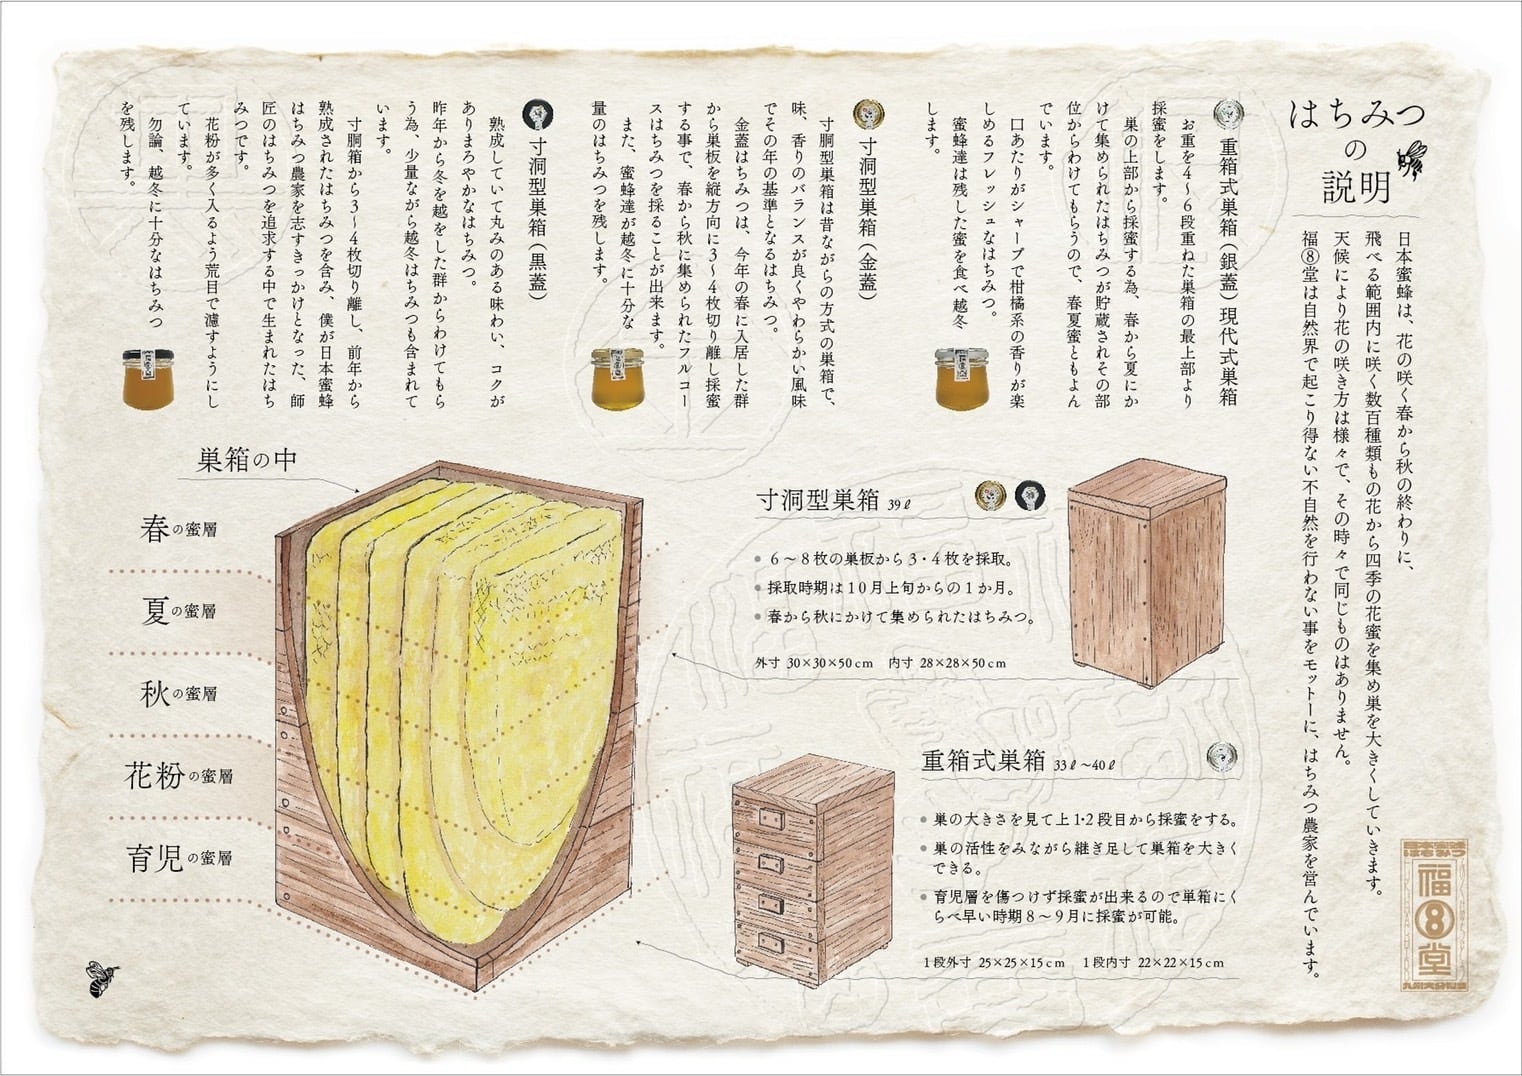 はちみつ
の
説明
日本蜜蜂は、花の咲く春から秋の終わりに、
飛べる範囲内に咲く数百種類もの花から四季の花蜜を集め巣を大きくしていきます。
天候により花の咲き方は様々で、その時々で同じものはありません。
福⑧堂は自然界で起こり得ない不自然を行わない事をモットーに、はちみつ農家を営んでいます。
重箱式巣箱（銀蓋）現代式巣箱
お重を4〜6段重ねた巣箱の最上部より
採蜜をします。
巣の上部から採蜜する為、春から夏にか
けて集められたはちみつが貯蔵されその部
位からわけてもらうので、春夏蜜ともよん
でいます。
口あたりがシャープで柑橘系の香りが楽
しめるフレッシュなはちみつ。
蜜蜂達は残した蜜を食べ越冬
します。
寸洞型巣箱（金蓋）
寸胴型巣箱は昔ながらの方式の巣箱で、
味、香りのバランスが良くやわらかい風味
でその年の基準となるはちみつ。
金蓋はちみつは、今年の春に入居した群
から巣板を縦方向に3〜4枚切り離し採蜜
する事で、春から秋に集められたフルコー
スはちみつを採ることが出来ます。
また、蜜蜂達が越冬に十分な
量のはちみつを残します。
寸洞型巣箱（黒蓋）
熟成していて丸みのある味わい、コクが
ありまろやかなはちみつ。
昨年から冬を越をした群からわけてもら
う為、少量ながら越冬はちみつも含まれて
います。
寸胴箱から3〜4枚切り離し、前年から
熟成されたはちみつを含み、僕が日本蜜蜂
はちみつ農家を志すきっかけとなった、師
匠のはちみつを追求する中で生まれたはち
みつです。
花粉が多く入るよう荒目で濾すようにし
ています。
勿論、越冬に十分なはちみつ
を残します。
巣箱の中
春の蜜層
夏の蜜層
秋の蜜層
花粉の蜜層
育児の蜜層
寸洞型巣箱 39ℓ
6〜8枚の巣板から3・4枚を採取。
採取時期は10月上旬からの1か月。
春から秋にかけて集められたはちみつ。
外寸 30×30×50cm 内寸 28×28×50cm
重箱式巣箱 33ℓ〜40ℓ
巣の大きさを見て上1・2段目から採蜜をする。
巣の活性をみながら継ぎ足して巣箱を大きく
できる。
育児層を傷つけず採蜜が出来るので単箱にく
らべ早い時期8〜9月に採蜜が可能。
1段外寸 25×25×15cm 1段内寸 22×22×15cm
福
⑧
堂